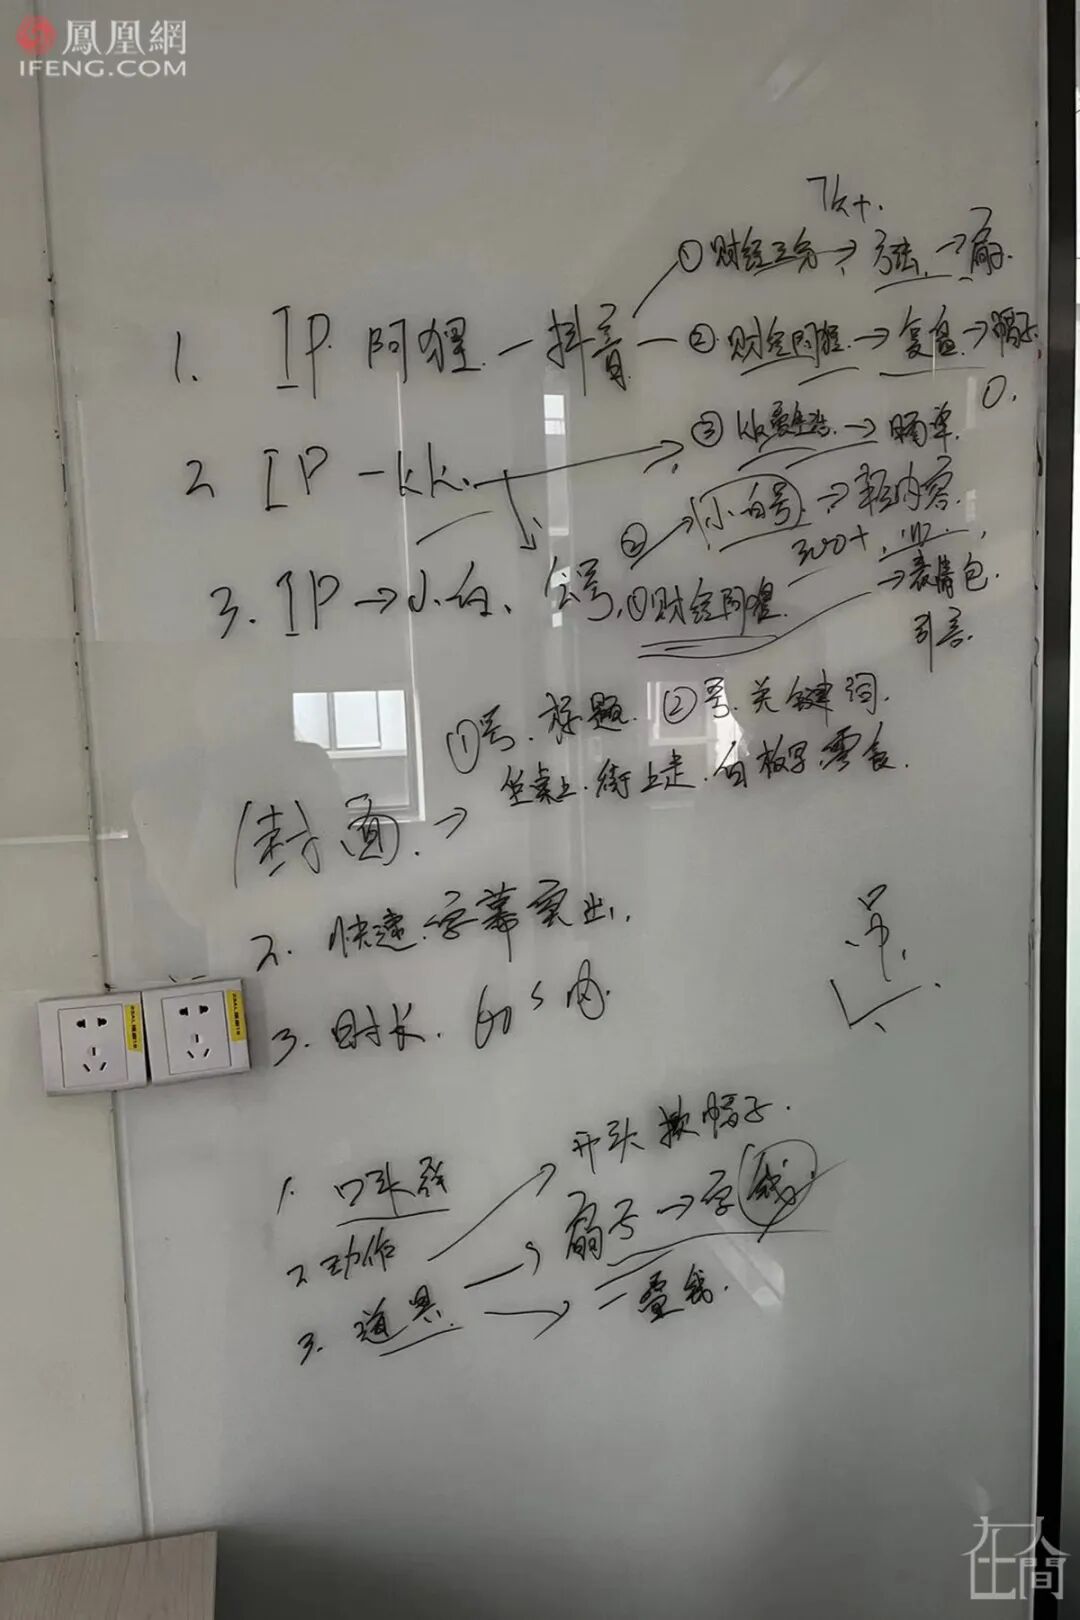 鳳凰網
IFENG.COM
①财经三分→方法→扇
1. IP 阿狸—抖音—②财经阿狸→复盘→帽子
2 IP—kk. ③kk爱生活→晒单.
②小白号→轻内容.
300+
3. IP→小白、公号,①财经阿狸. →表情包
引言
①号.标题.②号.关键词.
坐桌上.街上走.白板写.零食.
封面.→
2. 快速.字幕突出.
3. 时长. 60s内.
1. 口头禅
2 动作 开头掀帽子.
3. 道具. 扇子→字钱
一叠钱.
在人間